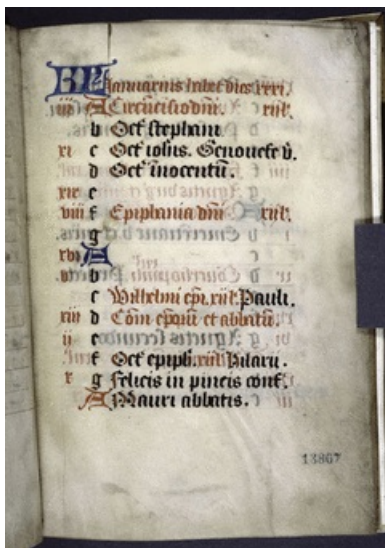 KL Ianuarius habet dies xxxi.
iii A Circūcisio dñi. xiil'.
b Oct' stephani.
xi c Oct' iohis. Genouefe v̄.
d Oct' inocentū.
xix e
viii f Epiphania dñi xiil'.
g
xvi A
v b
c Wilhelmi ep̄i. xiil'. Pauli.
xiii d Cōm ep̄orū et abbatū.
ii e
f Oct' epiph. xiil'. hilarii.
x g Felicis in pincis conf'.
A Mauri abbatis.
13867